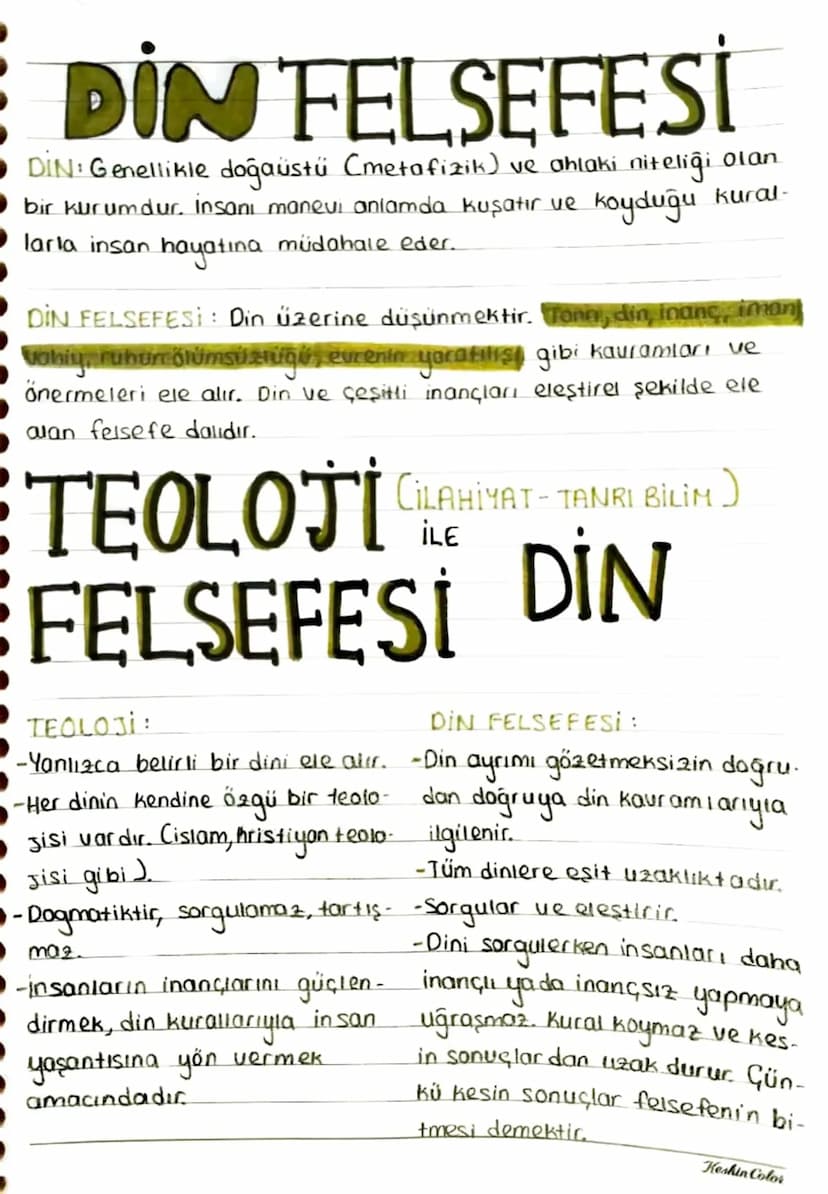 DİN FELSEFESİ
DİN: Genellikle doğaüstü (metafizik) ve ahlaki niteliği olan
bir kurumdur. İnsanı manevi anlamda kuşatır ve koyduğu kural-
larla insan hayatına müdahale eder.
DİN FELSEFESİ: Din üzerine düşünmektir. Tanrı, din, inanç, iman,
vahiy, ruhun ölümsüzlüğü, evrenin yaratılışı gibi kavramları ve
önermeleri ele alır. Din ve çeşitli inançları eleştirel şekilde ele
alan felsefe dalıdır.
TEOLOJİ (İLAHİYAT - TANRI BİLİM)
İLE
DİN
FELSEFESİ
TEOLOJİ:
-Yanlızca belirli bir dini ele alır.
-Her dinin kendine özgü bir teolo-
jisi vardır. (islam, hristiyan teolo-
jisi gibi).
-Dogmatiktir, sorgulamaz, tartış-
maz.
-İnsanların inançlarını güçlen-
dirmek, din kurallarıyla insan
yaşantısına yön vermek
amacındadır.
DİN FELSEFESİ:
-Din ayrımı gözetmeksizin doğru-
dan doğruya din kavramlarıyla
ilgilenir.
-Tüm dinlere eşit uzaklıktadır.
-Sorgular ve eleştirir.
-Dini sorgulerken insanları daha
inançlı yada inançsız yapmaya
uğraşmaz. Kural koymaz ve kes-
in sonuçlardan uzak durur. Çün-
kü kesin sonuçlar felsefenin bi-
tmesi demektir.
Keskin Color